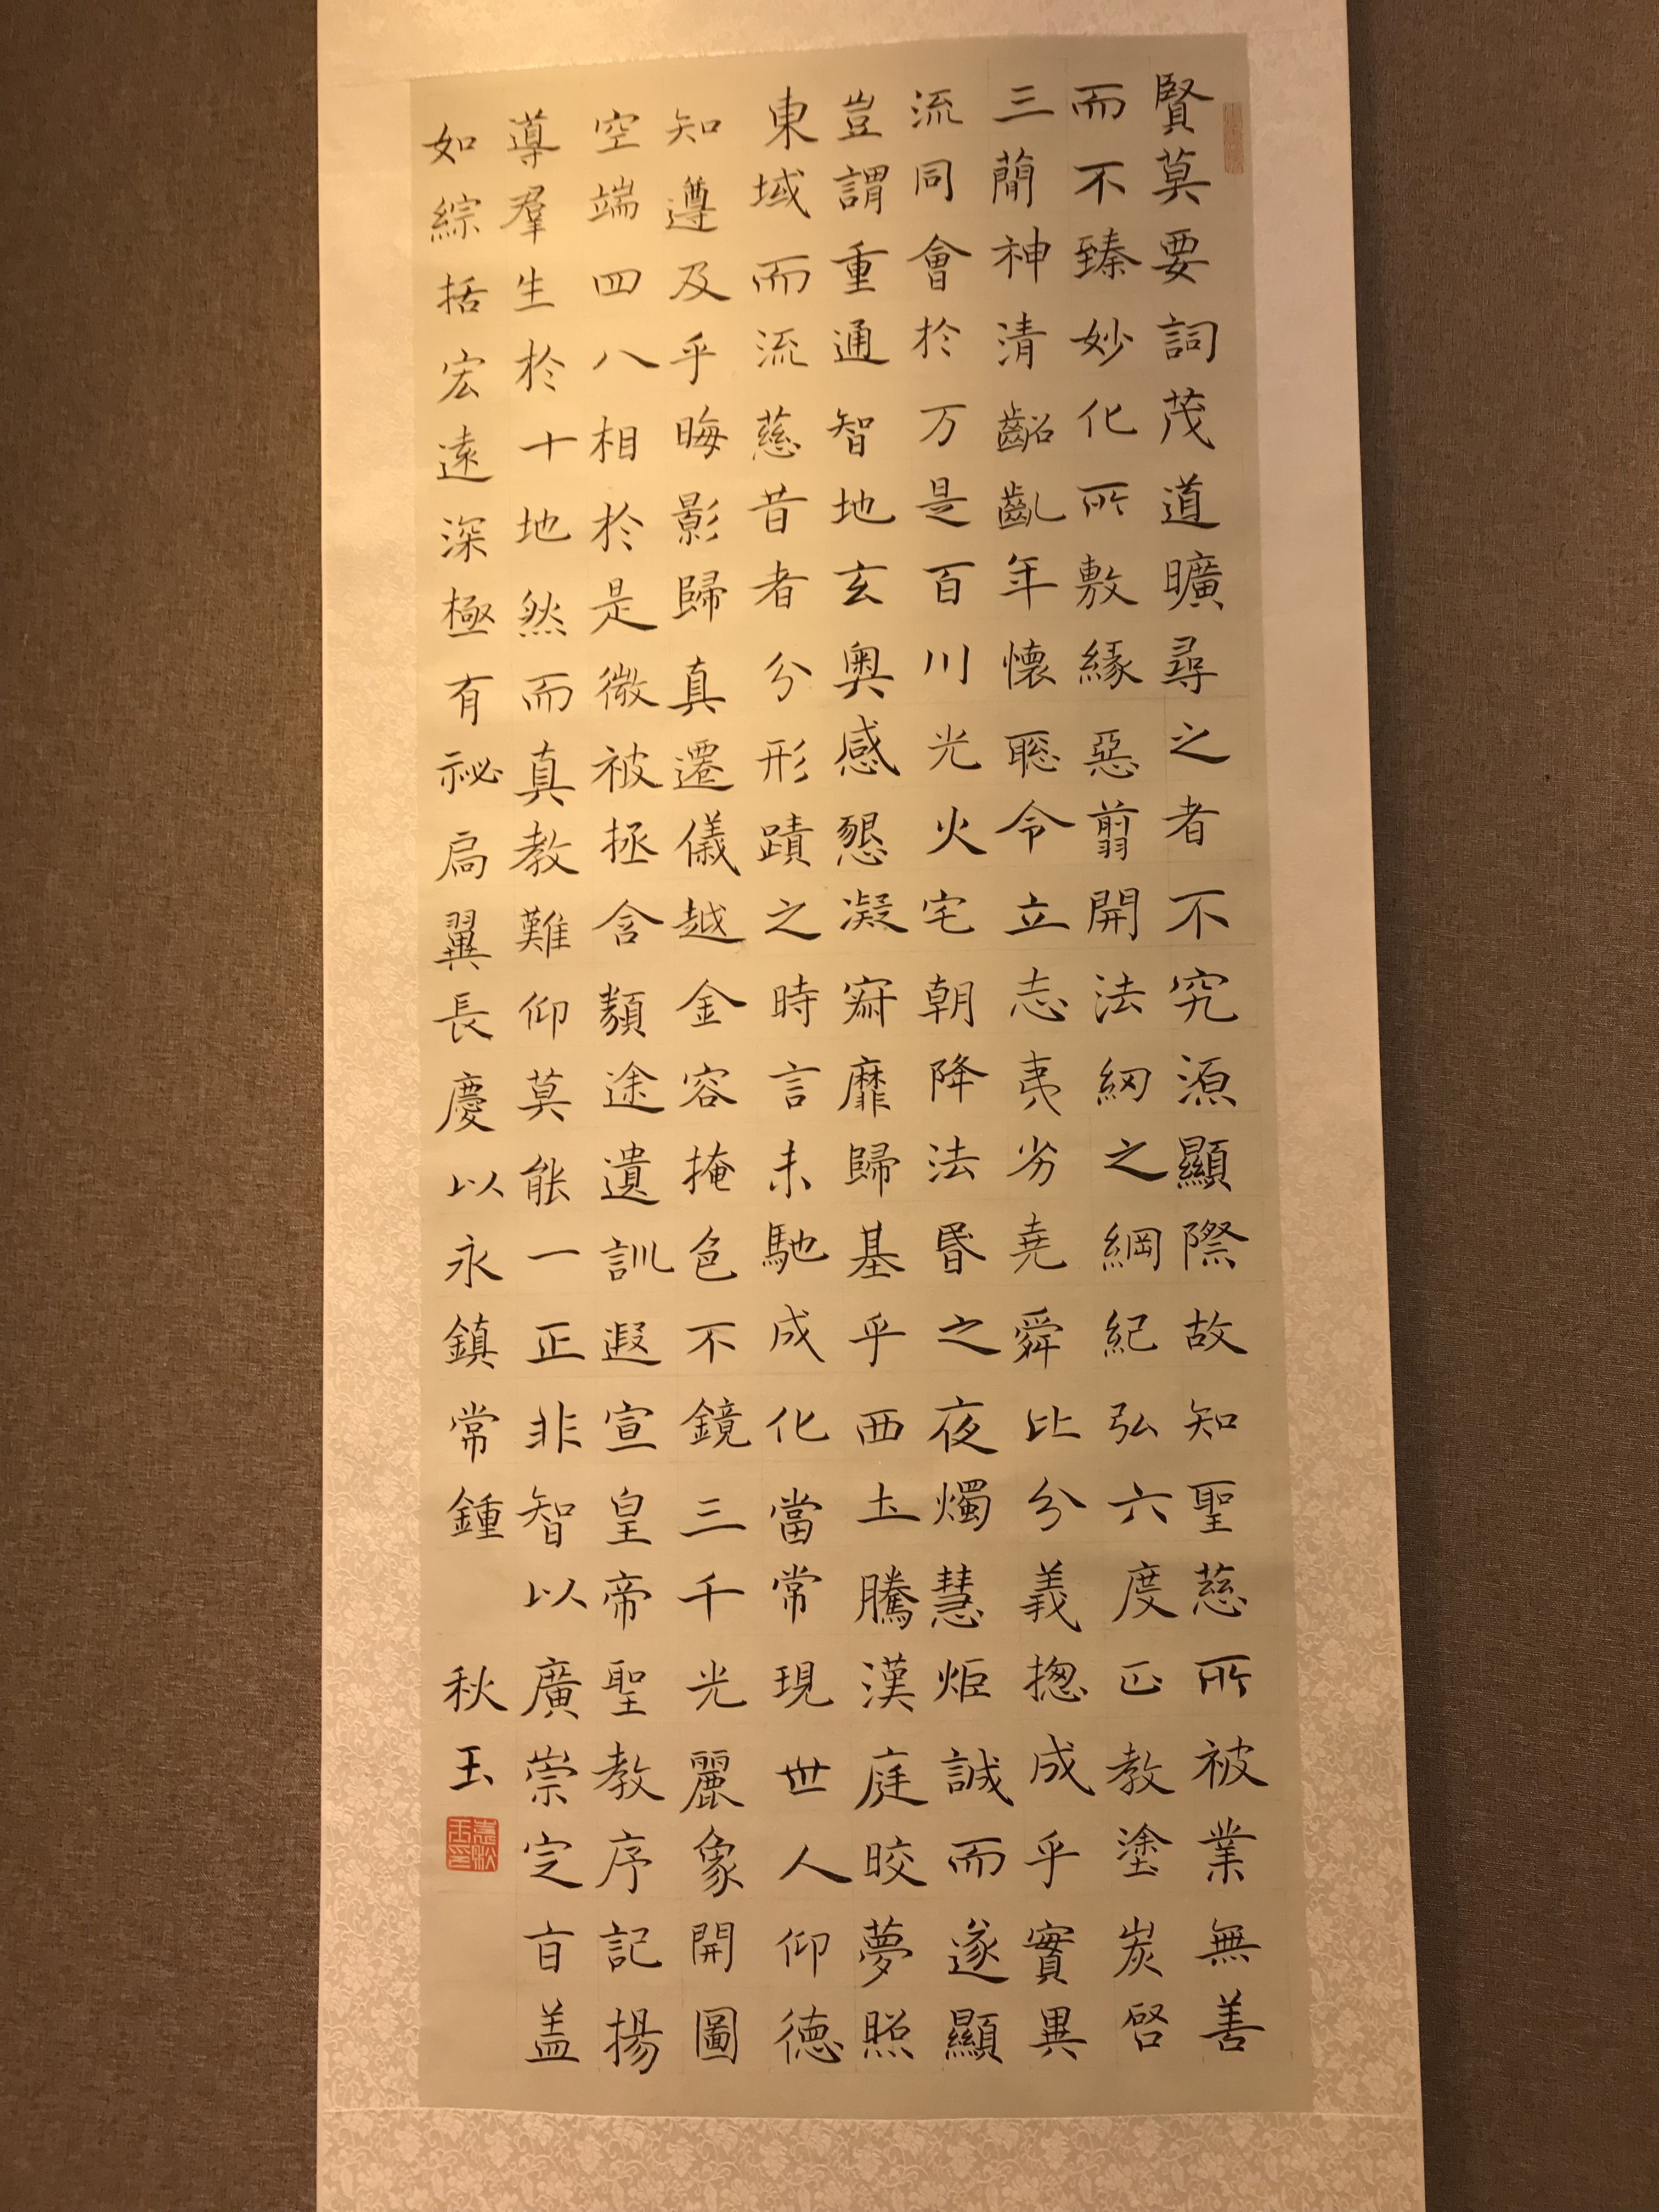 賢莫要詞茂道曠尋之者不究源顯際故知聖慈所被業無善
而不臻妙化所敷緣惡翦開法䋄之綱紀弘六度正教塗炭啓
三蕑神清齠齓年懷聡令立志夷劣堯舜比分義揔成乎實異
流同會於万是百川光火宅朝降法昬之夜燭慧炬誠而遂顯
豈謂重通智地玄奥感懇凝寂靡歸基乎西土騰漢庭晈夢照
東域而流慈昔者分形蹟之時言未馳成化當常現世人仰德
知遵及乎晦影歸真遷儀越金容掩色不鏡三千光麗象開圖
空端四八相於是微被拯含類途遺訓遐宣皇帝聖教序記揚
導羣生於十地然而真教難仰莫能一正非智以廣崇定旨盖
如綜括宏遠深極有祕扃翼長慶以永鎮常鍾 秋玉